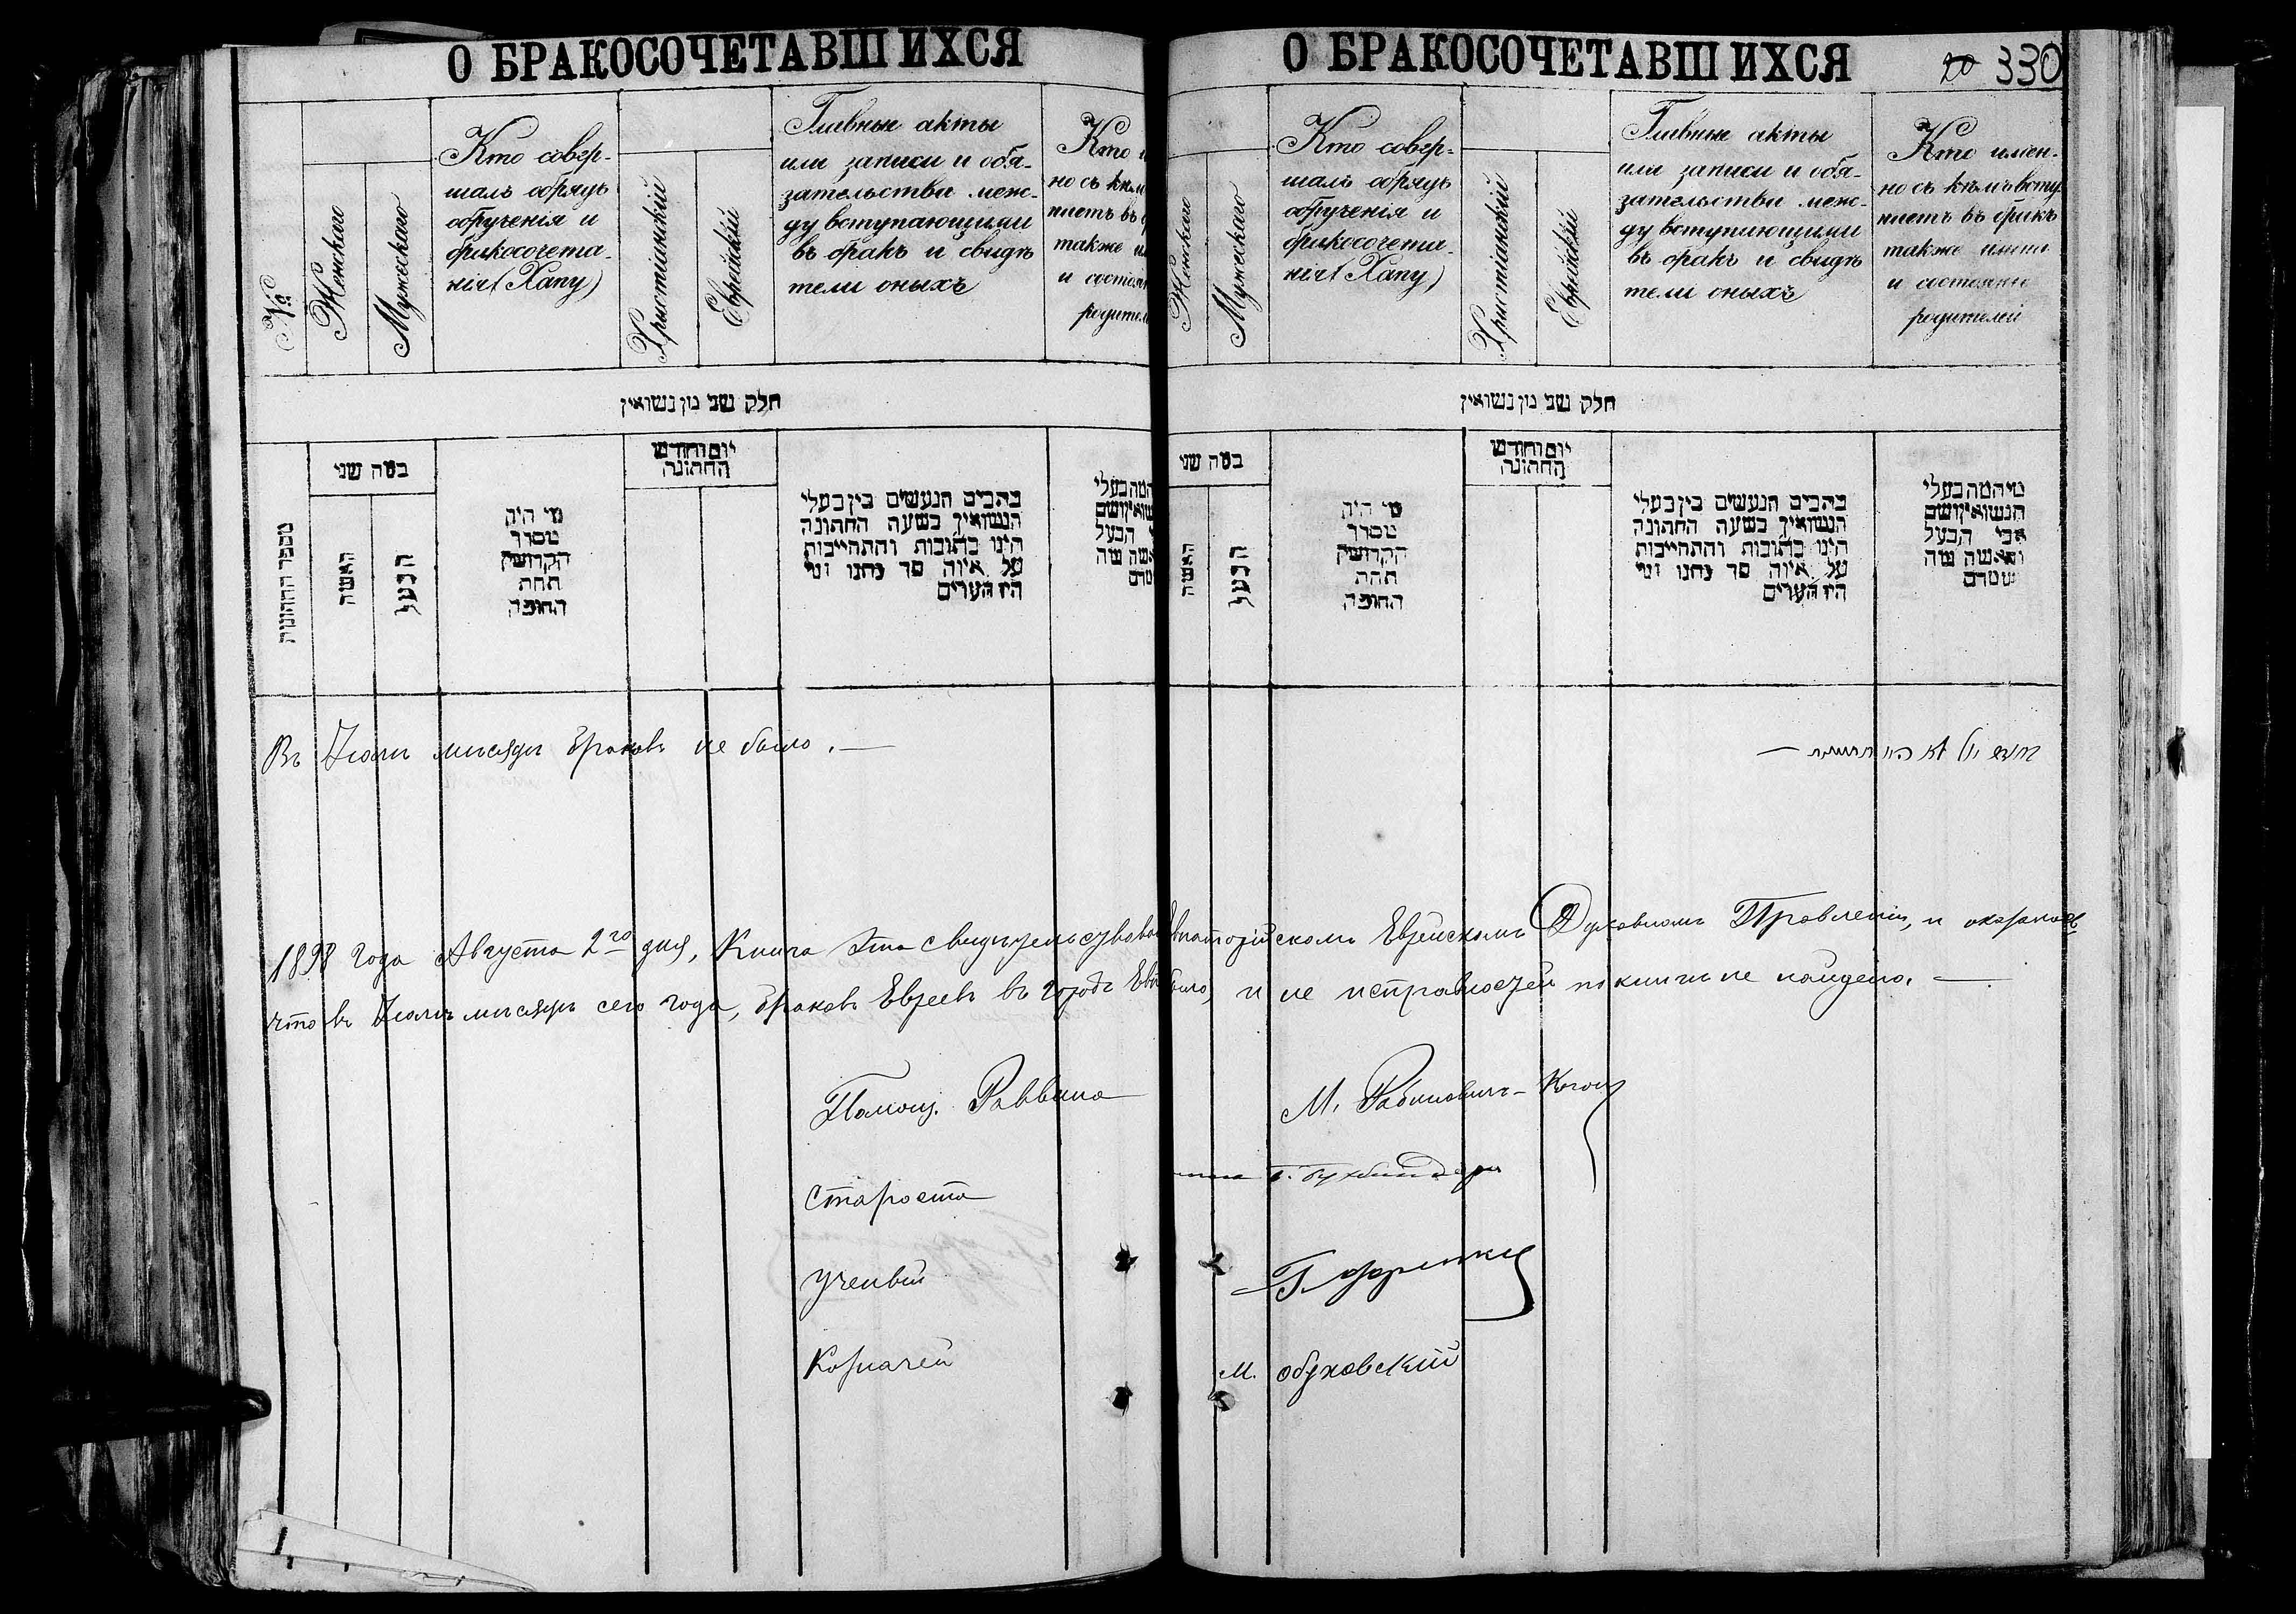 О БРАКОСОЧЕТАВШИХСЯ
№
Женскаго
Мужескаго
Кто совер-
шалъ обрядъ
обрученія и
бракосочета-
нія (Хапу)
Христіанскій
Еврейскій
Главные акты
или записи и обя-
зательства меж-
ду вступающими
въ бракъ и свидѣ
тели оныхъ
Кто и
но съ кѣм
паетъ въ
также им
и состоян
родител
חלק שני מן נשואין
מספר החתונות
במה שני
האשה
הבעל
מי היה
מסדר
הקדושין
תחת
החופה
יום וחודש
החתונה
כתבים הנעשים בין בעלי
הנשואין בשעה החתונה
היינו כתובות והתחייבות
על איזה סך נתנו ומי
היו הערים
Въ Іюлѣ мѣсяцѣ браковъ не было. —
О БРАКОСОЧЕТАВШИХСЯ
20 330
Женскаго
Мужескаго
Кто совер-
шалъ обрядъ
обрученія и
бракосочета-
нія (Хапу)
Христіанскій
Еврейскій
Главные акты
или записи и обя-
зательства меж-
ду вступающими
въ бракъ и свидѣ
тели оныхъ
Кто имен-
но съ кѣмъ всту
паетъ въ бракъ
также имена
и состояніе
родителей
חלק שני מן נשואין
במה שני
האשה
הבעל
מי היה
מסדר
הקדושין
תחת
החופה
יום וחודש
החתונה
כתבים הנעשים בין בעלי
הנשואין בשעה החתונה
היינו כתובות והתחייבות
על איזה סך נתנו ומי
היו הערים
מי המה בעלי
הנשואין ושם
אבי הבעל
והאשה מה
שמם
1898 года Августа 2го дня, Книга эта свидѣтельствова Евпаторійскомъ Еврейскомъ Духовномъ Правленіи, и оказалось
что въ Іюлѣ мѣсяцѣ сего года, браковъ Евреевъ въ городѣ Евп было, и не исправностей по книгѣ не найдено. —
Помощ. Раввина М. Рабиновичъ-Коганъ
Староста
Ученый
Казначей М. Обуховскій